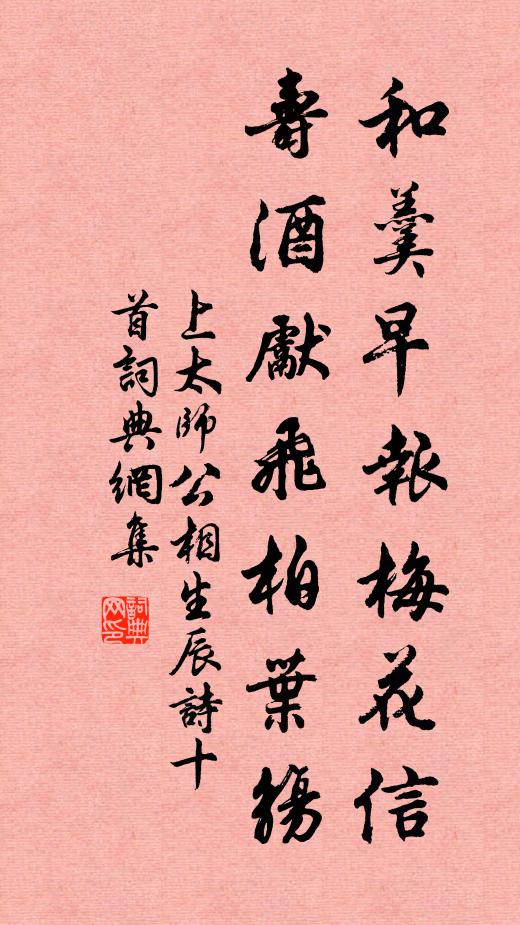 和羹早報梅花信
壽酒獻飛柏葉觴
上太師公相生辰詩十
首詞典網集
詞典
网印